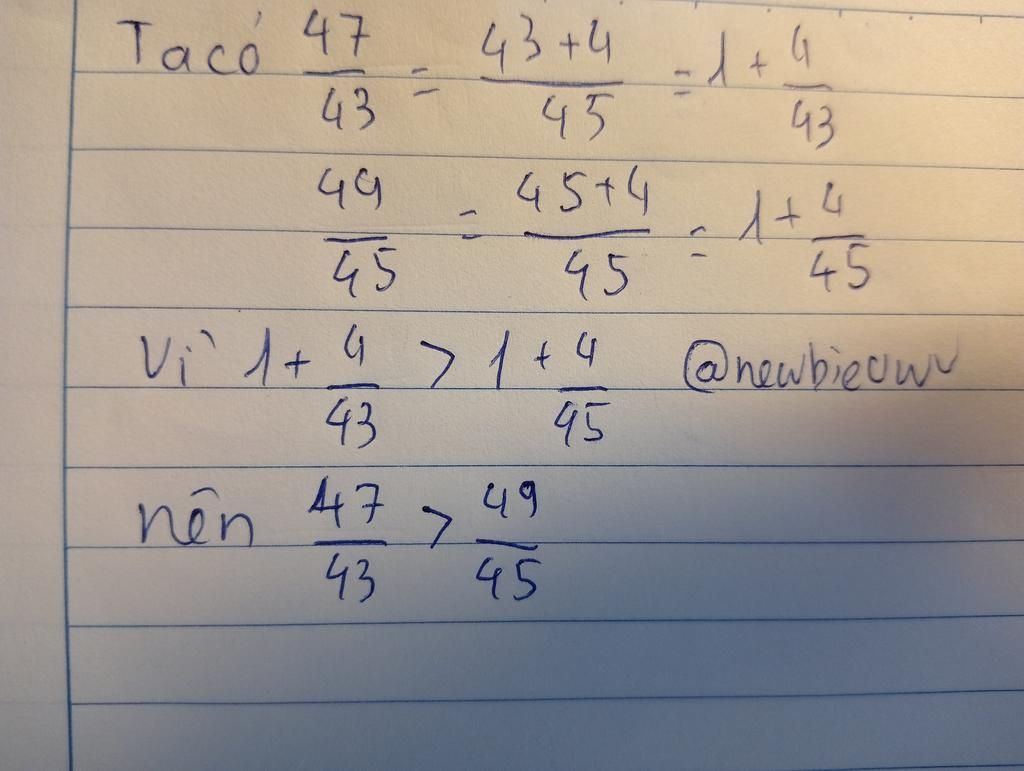 Ta có 47/43 = (43+4)/45 = 1 + 4/43
49/45 = (45+4)/45 = 1 + 4/45
Vì 1 + 4/43 > 1 + 4/45 @newbieuwu
nên 47/43 > 49/45